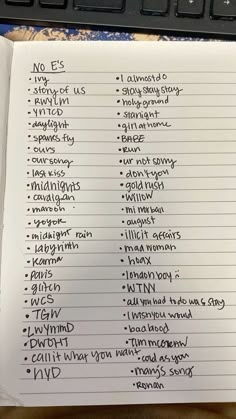 NO E'S
• Ivy
• story of us
• RWYLM
• YNTCD
• daylight
• sparks fly
• ours
• our song
• last kiss
• midnights
• cardigan
• maroon
• yoyok
• midnight rain
• labyrinth
• karma
• paris
• glitch
• WCS
• TGW
• LWYMMD
• DWOHT
• call it what you want
• NYD
• I almost do
• stay stay stay
• holy ground
• starlight
• girl at home
• BABE
• Run
• ur not sorry
• don't you
• gold rush
• WILLOW
• mirrorball
• august
• illicit affairs
• mad woman
• hoax
• london boy
• WTNY
• all you had to do was stay
• I wish you would
• bad blood
• Tim mcgraw
• cold as you
• mary's song
• Ronan